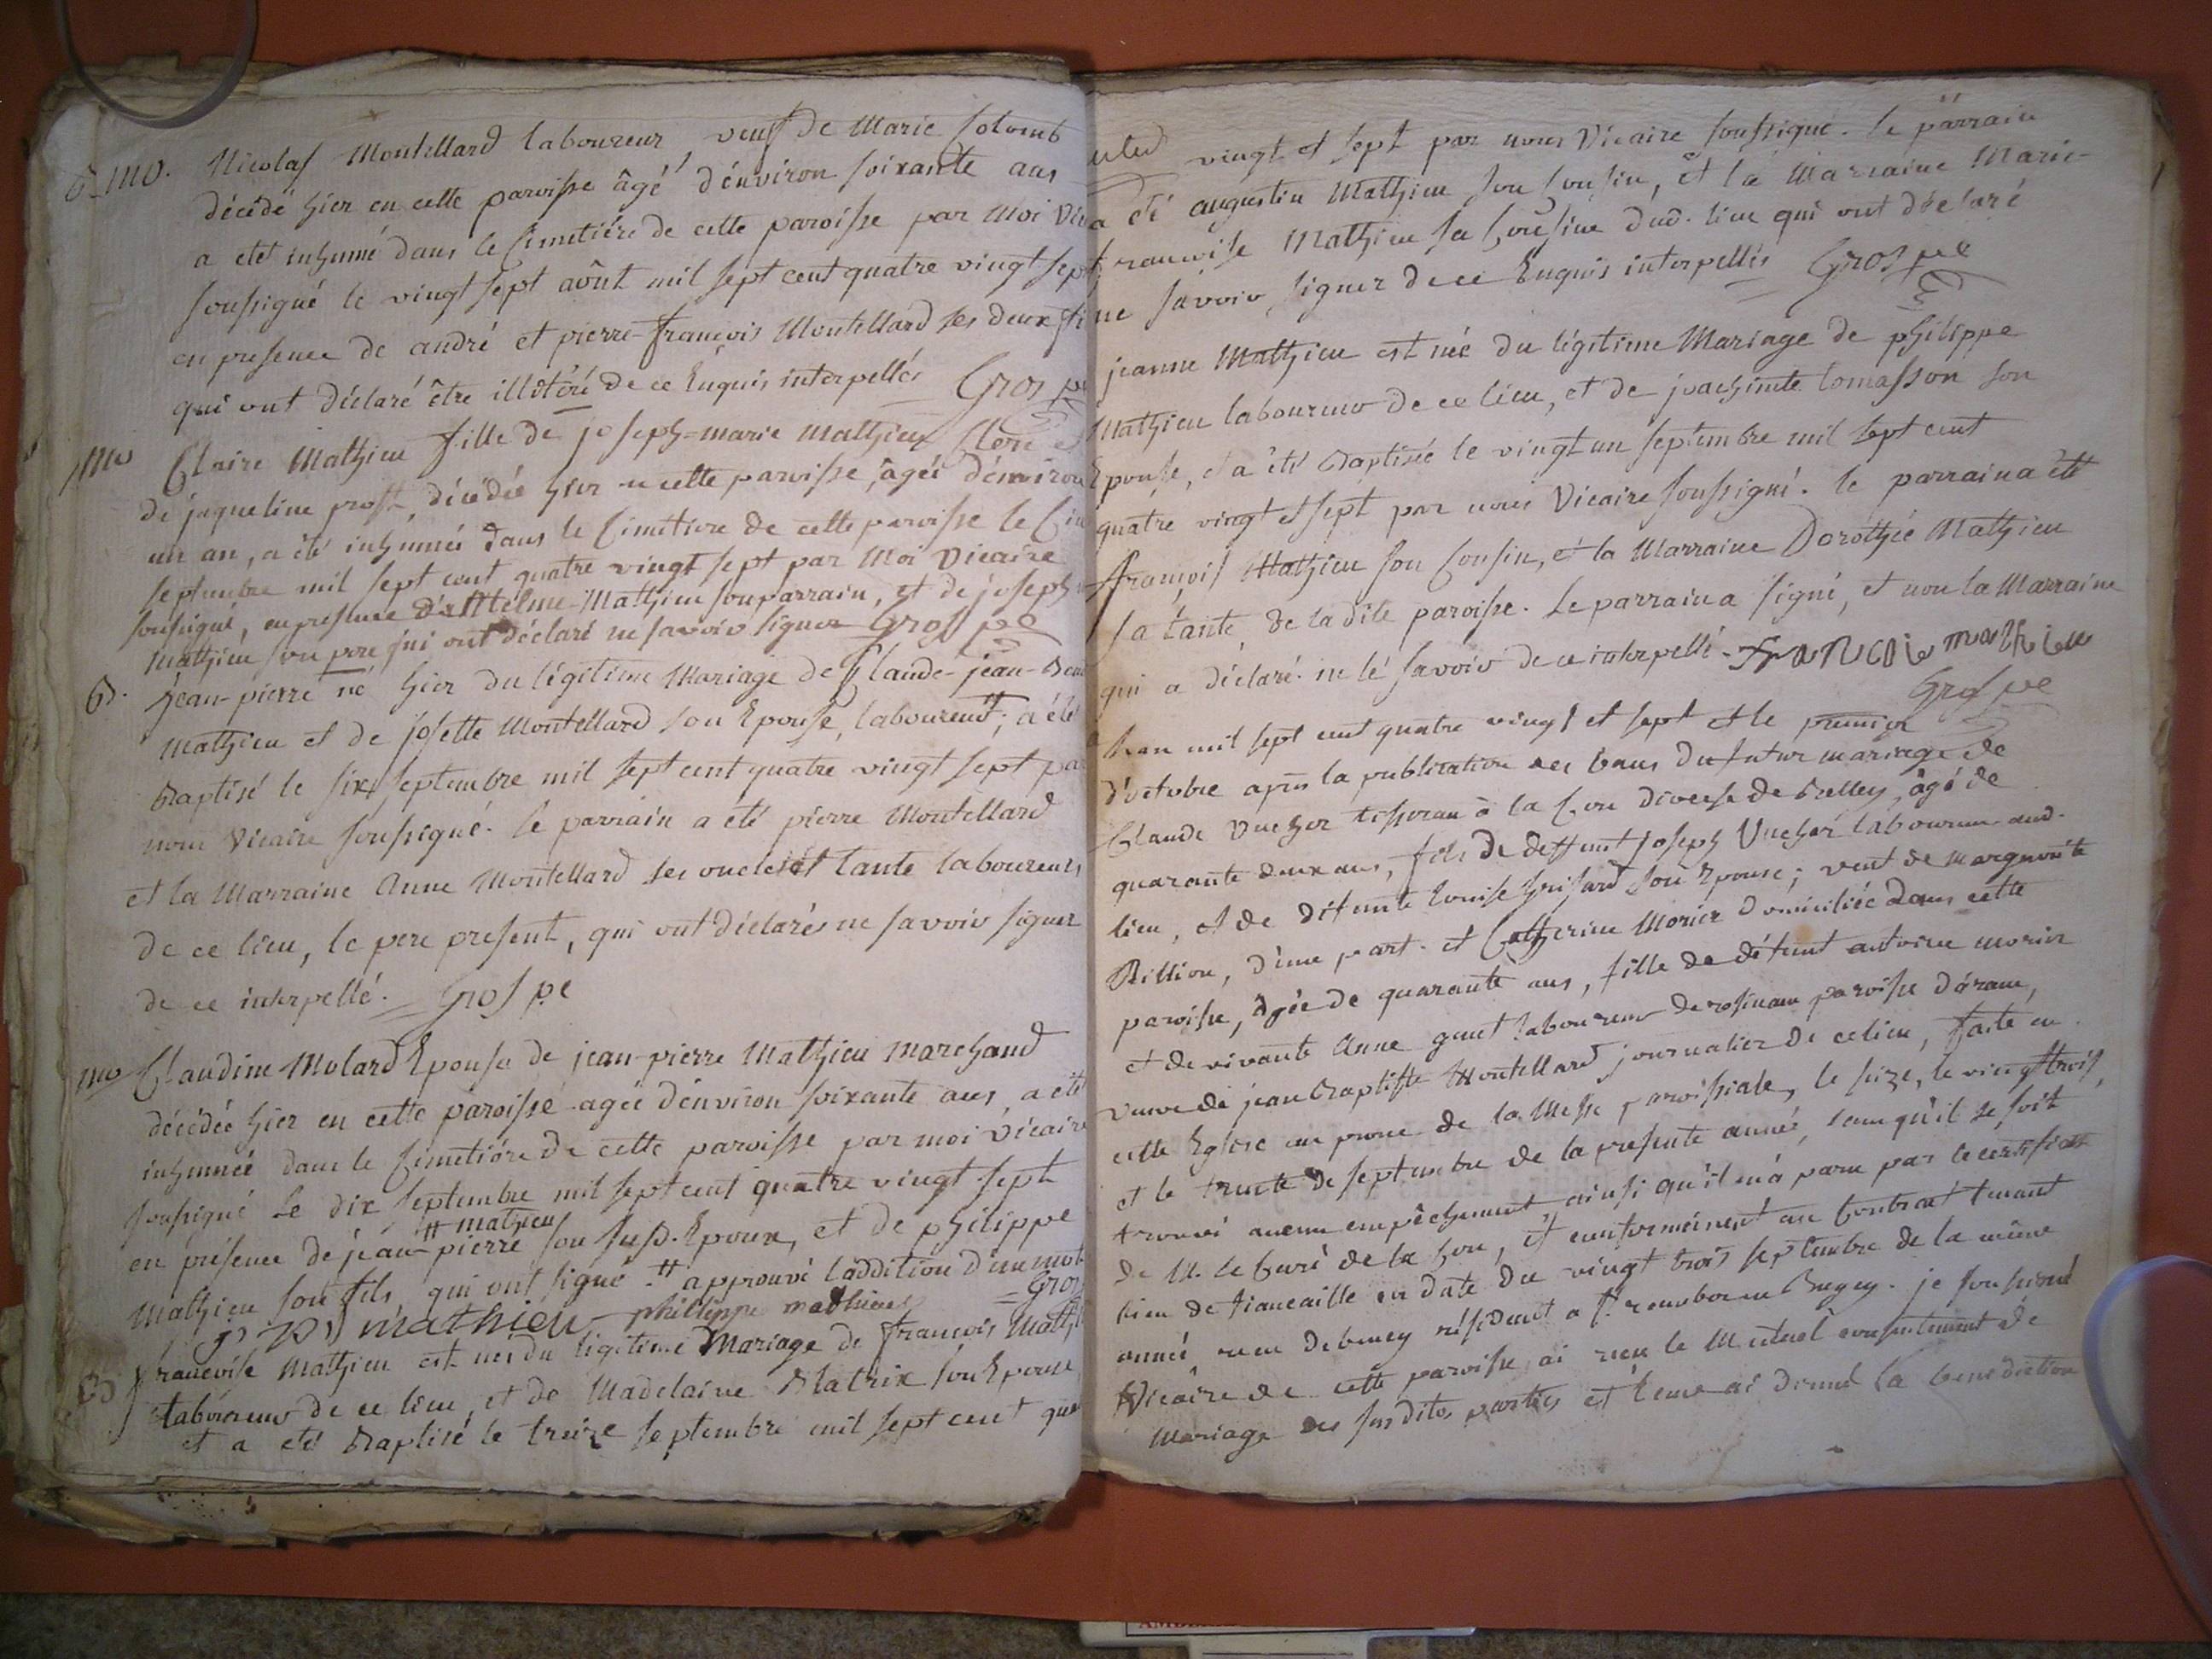 mo. Nicolas Montillard laboureur, veuf de Marie Colomb
décédé hier en cette paroisse âgé d'environ soixante ans
a eté inhumé dans le Cimetiére de cette paroisse par moi Vic
soussigné le vingt sept août mil sept cent quatre vingt sept
en presence de andré et pierre-françois Montillard ses deux fi
qui ont déclaré être illitéré de ce Enquis interpellés Gros pe
mo Claire Mathieu fille de joseph-marie Mathieu
de jaqueline prost, décédée hier en cette paroisse, âgée d'environ
un an, a été inhumée dans le Cimetiere de cette paroisse le Cin
septembre mil sept cent quatre vingt sept par Moi Vicaire
soussigné, en presence d'Antelme Mathieu son parrain, et de joseph
Mathieu son pere qui ont déclaré ne savoir signer Gros pe
B. Jean-pierre né hier du légitime Mariage de Claude-jean-
Mathieu et de josette Montillard son Epouse, laboureurs, a été
Baptisé le six septembre mil sept cent quatre vingt sept pa
nous Vicaire soussigné. le parrain a été pierre Montillard
et la Marraine Anne Montillard ses oncle et tante laboureurs
de ce lieu, le pere present, qui ont déclarés ne savoir signer
de ce interpellé. Gros pe
mo Claudine Molard Epouse de jean-pierre Mathieu marchand
décédée hier en cette paroisse agée d'environ soixante ans, a été
inhumée dans le Cimetiére de cette paroisse par moi Vicaire
soussigné Le dix septembre mil sept cent quatre vingt sept
# mathieu
en présence de jean-pierre # son susd. Epoux, et de philippe
Mathieu son fils qui ont signé. # approuvé l'addition d'un mot
mathieu philippe mathieu = Gros
B francoise Mathieu est née du légitime Mariage de francois Math
laboureur de ce lieu, et de Madelaine Blatrix son Epouse
et a eté Baptisé le treize septembre mil sept cent qua
vingt et sept par nous Vicaire soussigné. le parrain
a été augustin Mathieu son Cousin, et la Marraine Marie-
francoise Mathieu sa Cousine dud. lieu qui ont déclaré
ne savoir signer de ce Enquis interpellés Gros pe
jeanne Mathieu est née du légitime Mariage de philippe
Mathieu laboureur de ce lieu, et de joachimte tomasson son
Epouse, et a été Baptisée le vingt un septembre mil sept cent
quatre vingt et sept par nous Vicaire soussigné. le parrain a été
françois Mathieu son Cousin, et la Marraine Dorothée Mathieu
sa tante, de la dite paroisse. Le parrain a signé, et non la Marraine
qui a déclaré ne le savoir de ce interpellé. francois mathieu
Gros pe
L'an mil sept cent quatre vingt et sept et le premier
d'octobre après la publication des bans du futur mariage de
Claude Vucher tisseran à la Cou diocese de Belley, âgé de
quarante deux ans, fils de deffunt joseph Vucher laboureur aud.
lieu, et de défunte Louise grisard son Epouse; veuf de marguerite
Billion, d'une part. et Catherine Morier domiciliée dans cette
paroisse, âgée de quarante ans, fille de défunt antoine morier
et de vivante Anne genet laboureur de paroisse d'aranc,
veuve de jean Baptiste Montillard journalier de ce lieu, faite en
cette Eglise au prone de la Messe paroissiale, le seize, le vingt trois,
et le trente de septembre de la presente année, sans qu'il se soit
trouvé aucun empêchement, ainsi qu'il m'a paru par le certificat
de M. le Curé de la Cou, et conformément au Contrat tenant
lieu de fiancaille en date du vingt trois septembre de la même
année résident a St rambert en Bugey. je soussigné
Vicaire de cette paroisse ai reçu le Mutuel consentement de
Mariage des susdites parties et leur ai donné la bénédiction